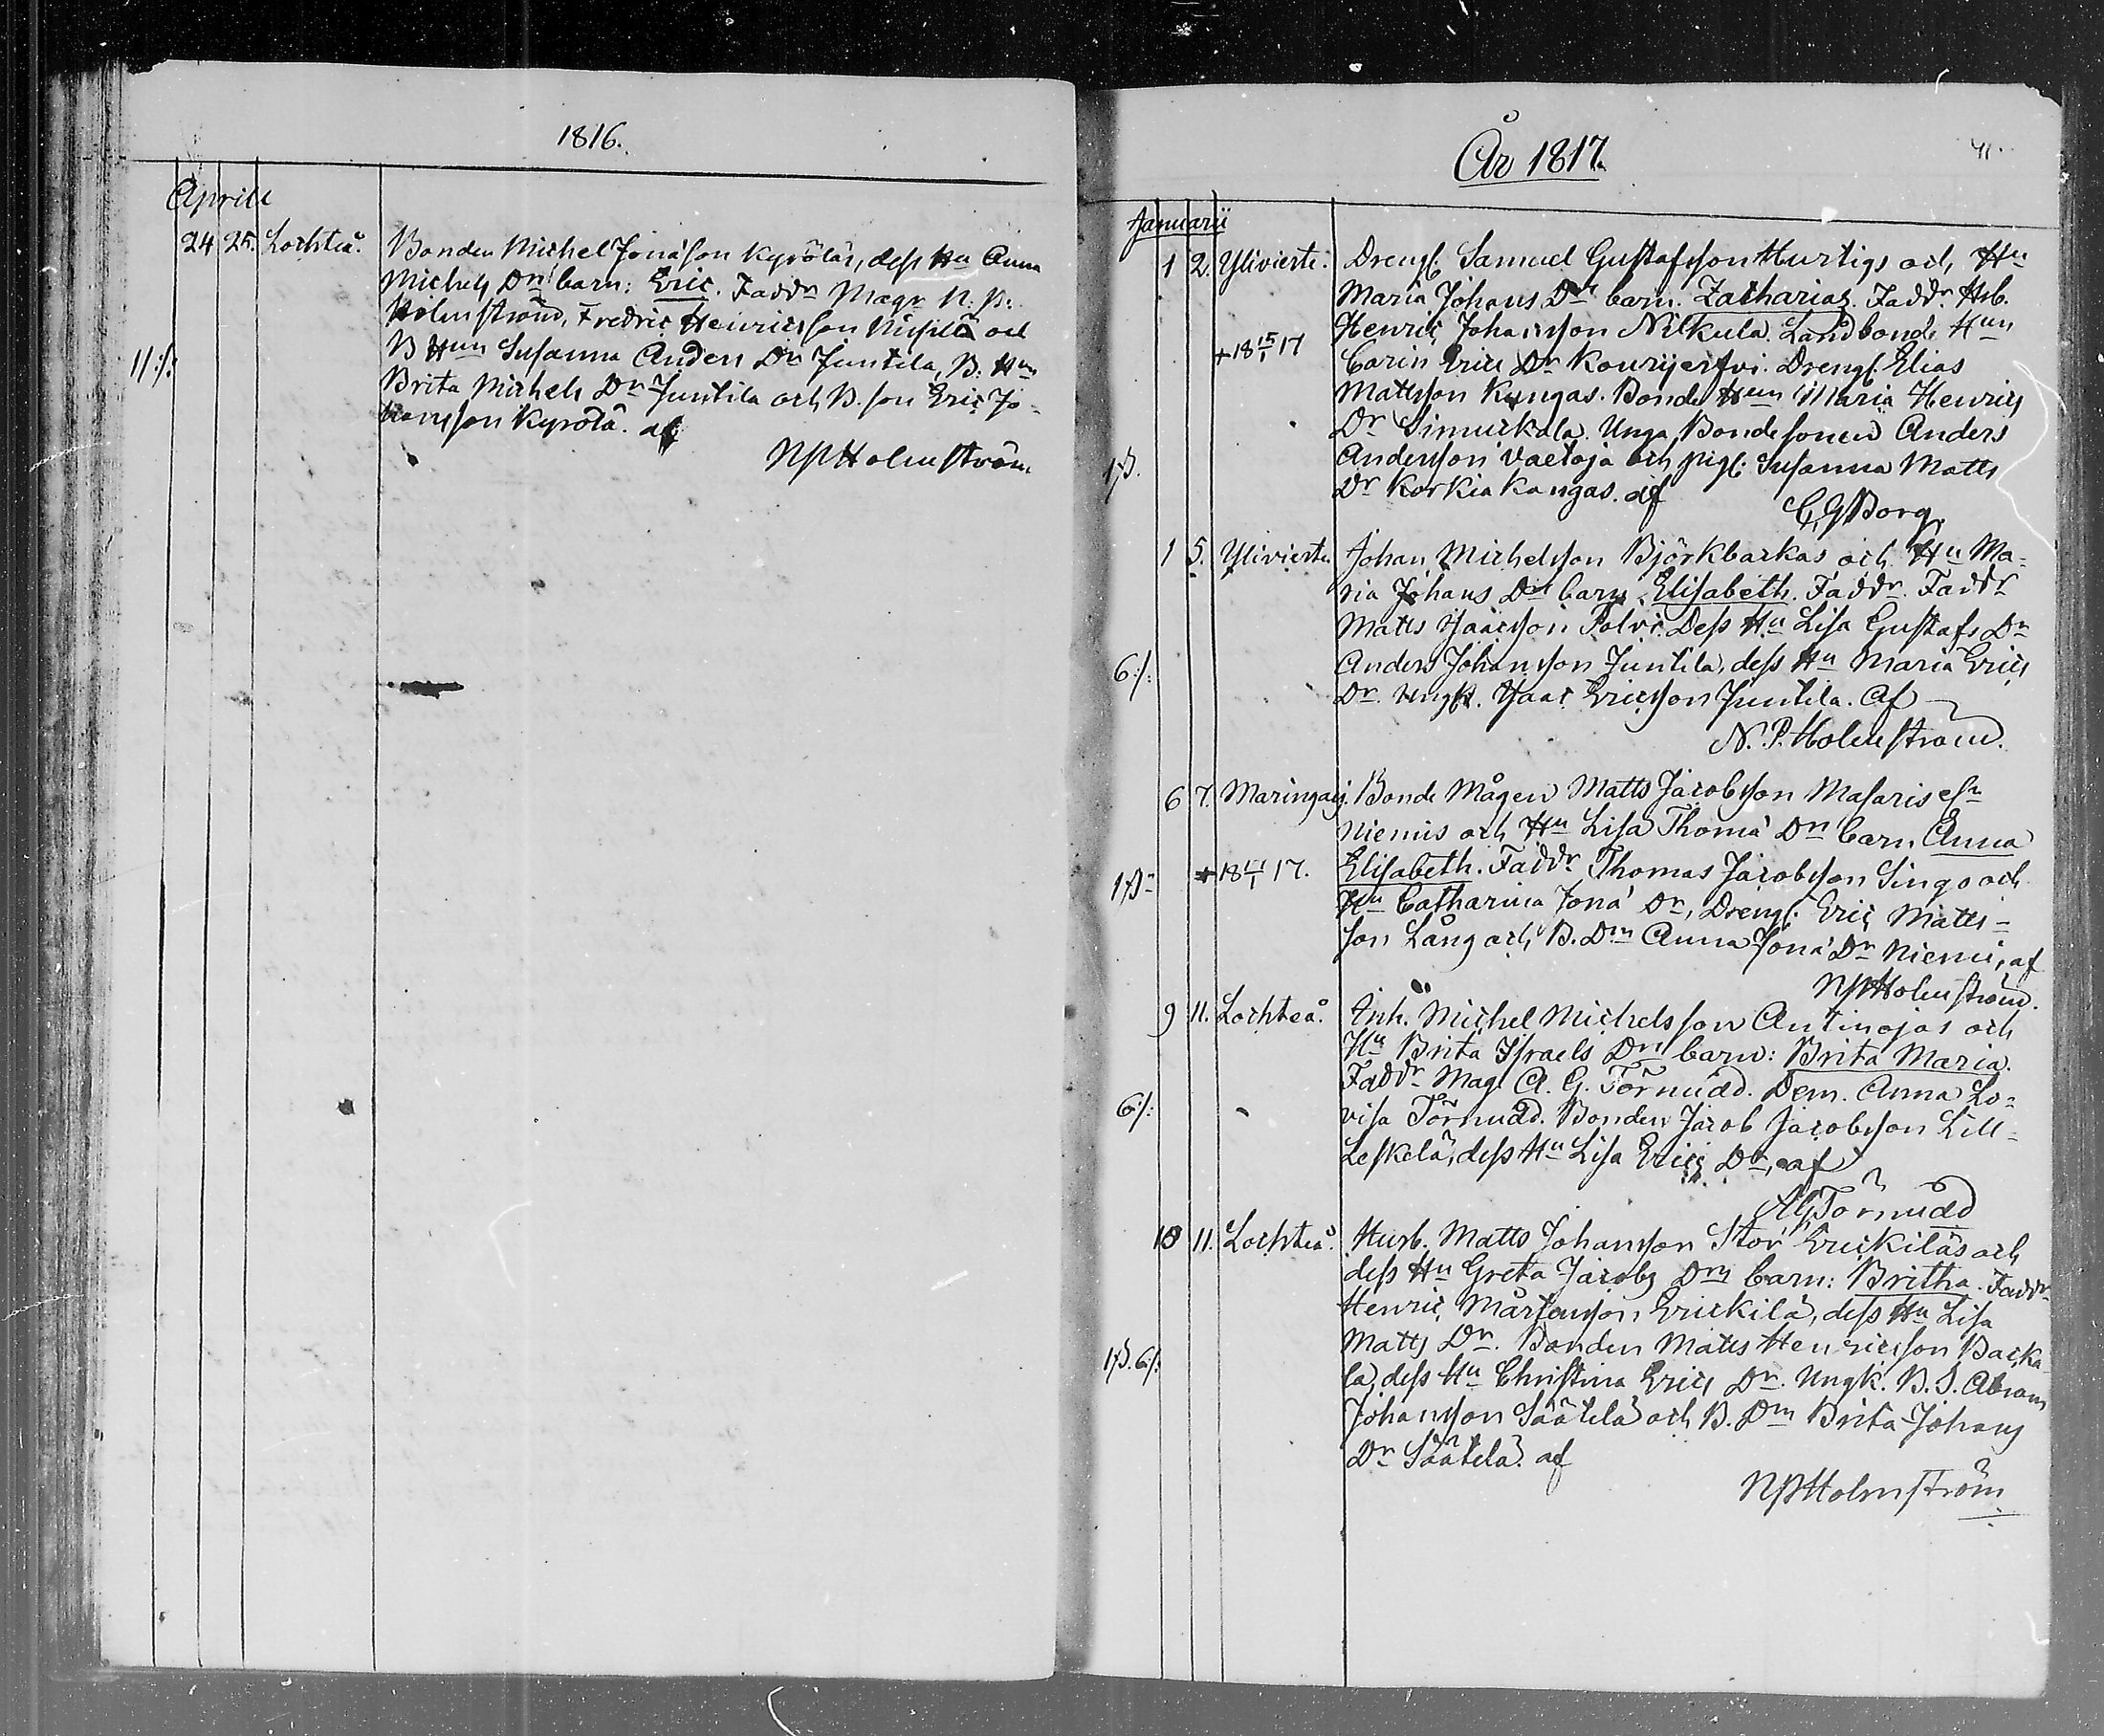 1816.
Aprill
24 25. Lochteå. Bonden Michel Jonasson Kyrölä's, dess Hu Anna
Michels Drs barn: Eric. Faddr Magr N. P.
Holmström, Fredric Henricsson och
B Hun Susanna Anders Dr Juntila, B. Hun
11/:
Brita Michels Dr Juntila och B. son Eric Jo-
hansson Kyrölä. af
NPHolmström
År 1817.
41
Januarii
1 2. Ylivierte. Drengl. Samuel Gustafsson Hurtigs och Hu
Maria Johans Drs barn. Zacharias. Faddr Hsb.
Henric Johansson Nilkula. Landbonde Hun
+18 15/1 17
Carin Erics Dr Kourijerfvi. Drengl. Elias
Mattsson Kangas. Bonde Hun Maria Henrics
Dr Simuckala. Unga Bondesonen Anders
Andersson Vaetoja och pigl: Susanna Matts
Dr Korkiakangas. af
C,GBorg.
1 5. Ylivierte. Johan Michelsson Björkbackas och Hu Ma-
ria Johans Drs barn Elisabeth. Faddr. Faddr
Matts Isaacsson Polvi. Dess Hu Lisa Gustafs Dr
Anders Johansson Juntila, dess Hu Maria Erics
6:/:
Dr. Ungk. Isaac Ericsson Juntila. af
N.P.Holmström.
6 7. Maringais. Bonde Mågen Matts Jacobsson Masaris
Niemis och Hu Lisa Thomæ Drs barn Anna
+18 17. Elisabeth. Faddr Thomas Jacobsson Singo och
Hu Catharina Jonæ Dr, Drengl. Eric Matts-
son Lång och B. Drn Anna Jonæ Dr Niemi, af
NPHolmström.
9 11. Lochteå. Inh. Michel Michelsson Antinojas och
Hu Brita Israels Drs barn: Brita Maria.
Faddr Mag. A. G. Törnudd. Dem. Anna Lo-
6:/:
visa Törnudd. Bonden Jacob Jacobsson Lill-
Leskelä, dess Hu Lisa Erics Dr, af
AGTörnudd
10 11. Lochteå. Husb. Matts Johansson Stor Erickiläs och
dess Hu Greta Jacobs Drs barn: Britha. Faddr
Henric Mårtensson Erickilä, dess Hu Lisa
Matts Dr. Bonden Matts Henricsson Backa-
la, dess Hu Christina Erics Dr. Ungk. B. S. Abram
Johansson Säätelä och B. Drn Brita Johans
Dr Säätelä. af
NPHolmström